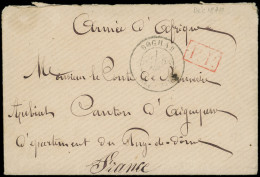 Armée d'Afrique
BOGHAR
P.P.
Monsieur le Comte de
Canton d'Aigueperse
Département du Puy-de-Dôme
France